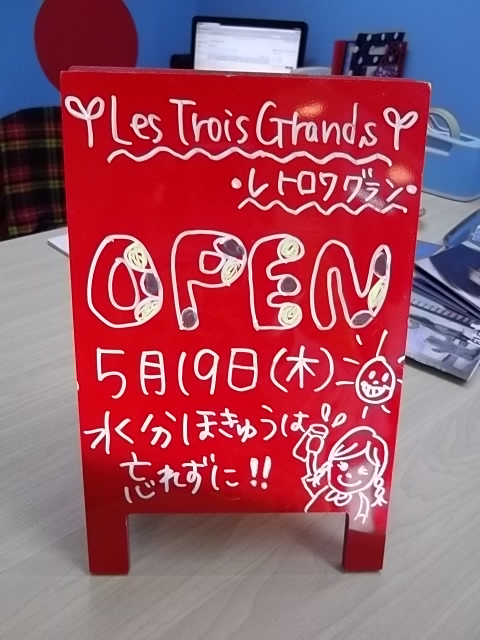 Les Trois Grands
・レトロワグラン・
OPEN
5月19日(木)
水分ほきゅうは
忘れずに!!